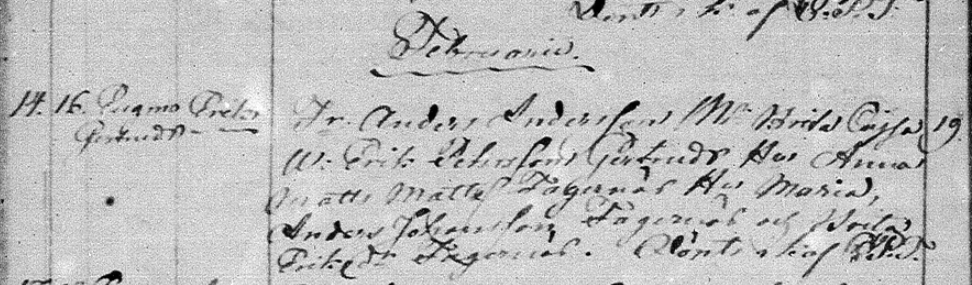 Döpt s. k. af
Februarii.
14. 16. Pugmo Eric
Gertruds
Fr. Anders Andersson M. Brita Cajsa 19
W. Erik Pehrsson Gertruds Hus Anna
Matts Matts Fagernäs Hus Maria,
Anders Johansson Fagernäs och Brita
Eriks dr Fagernäs. Döpt s. k. af